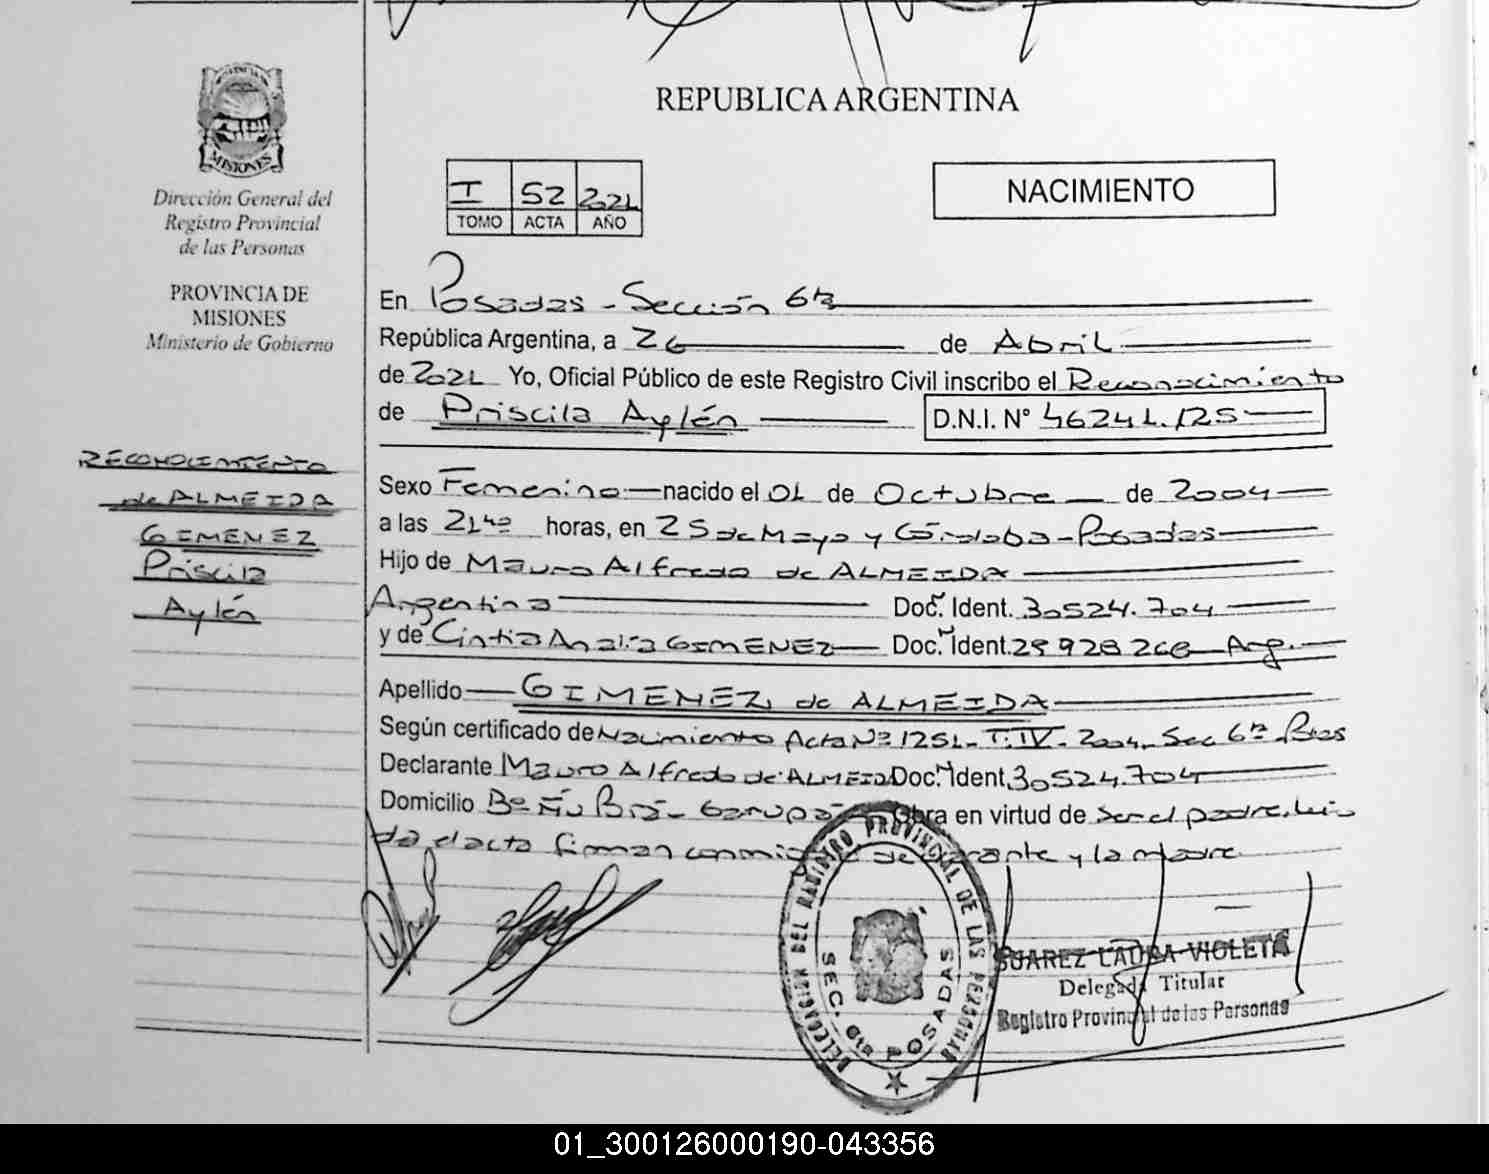 REPUBLICA ARGENTINA
MISIONES
Dirección General del
Registro Provincial
de las Personas
PROVINCIA DE
MISIONES
Ministerio de Gobierno
I 52 2021
TOMO ACTA AÑO
NACIMIENTO
En Posadas - Sección 6ta
República Argentina, a 26 de Abril
de 2021 Yo, Oficial Público de este Registro Civil inscribo el Reconocimiento
de Priscila Aylén D.N.I. N° 46241.125
RECONOCIMIENTO
de ALMEIDA
GIMENEZ
Priscila
Aylén
Sexo Femenino nacido el 01 de Octubre de 2004
a las horas, en 25 de Mayo y Córdoba - Posadas
Hijo de Mauro Alfredo de ALMEIDA
Argentina Doc. Ident. 30524.704
y de Cintia Analía GIMENEZ Doc. Ident. Arg.
Apellido GIMENEZ, de ALMEIDA
Según certificado de Nacimiento Acta Nº 1251 - T. IV - 2004 - Sec 6ta Pdas
Declarante Mauro Alfredo de ALMEIDA Doc. Ident. 30524.704
Domicilio Bº Ñu Porá - Garupá Obra en virtud de ser el padre. Leí
da el acta firman conmigo el declarante y la madre
DELEGACION DEL REGISTRO PROVINCIAL DE LAS PERSONAS
SEC. 6ta POSADAS
SUAREZ LAURA VIOLETA
Delegada Titular
Registro Provincial de las Personas
01_300126000190-043356